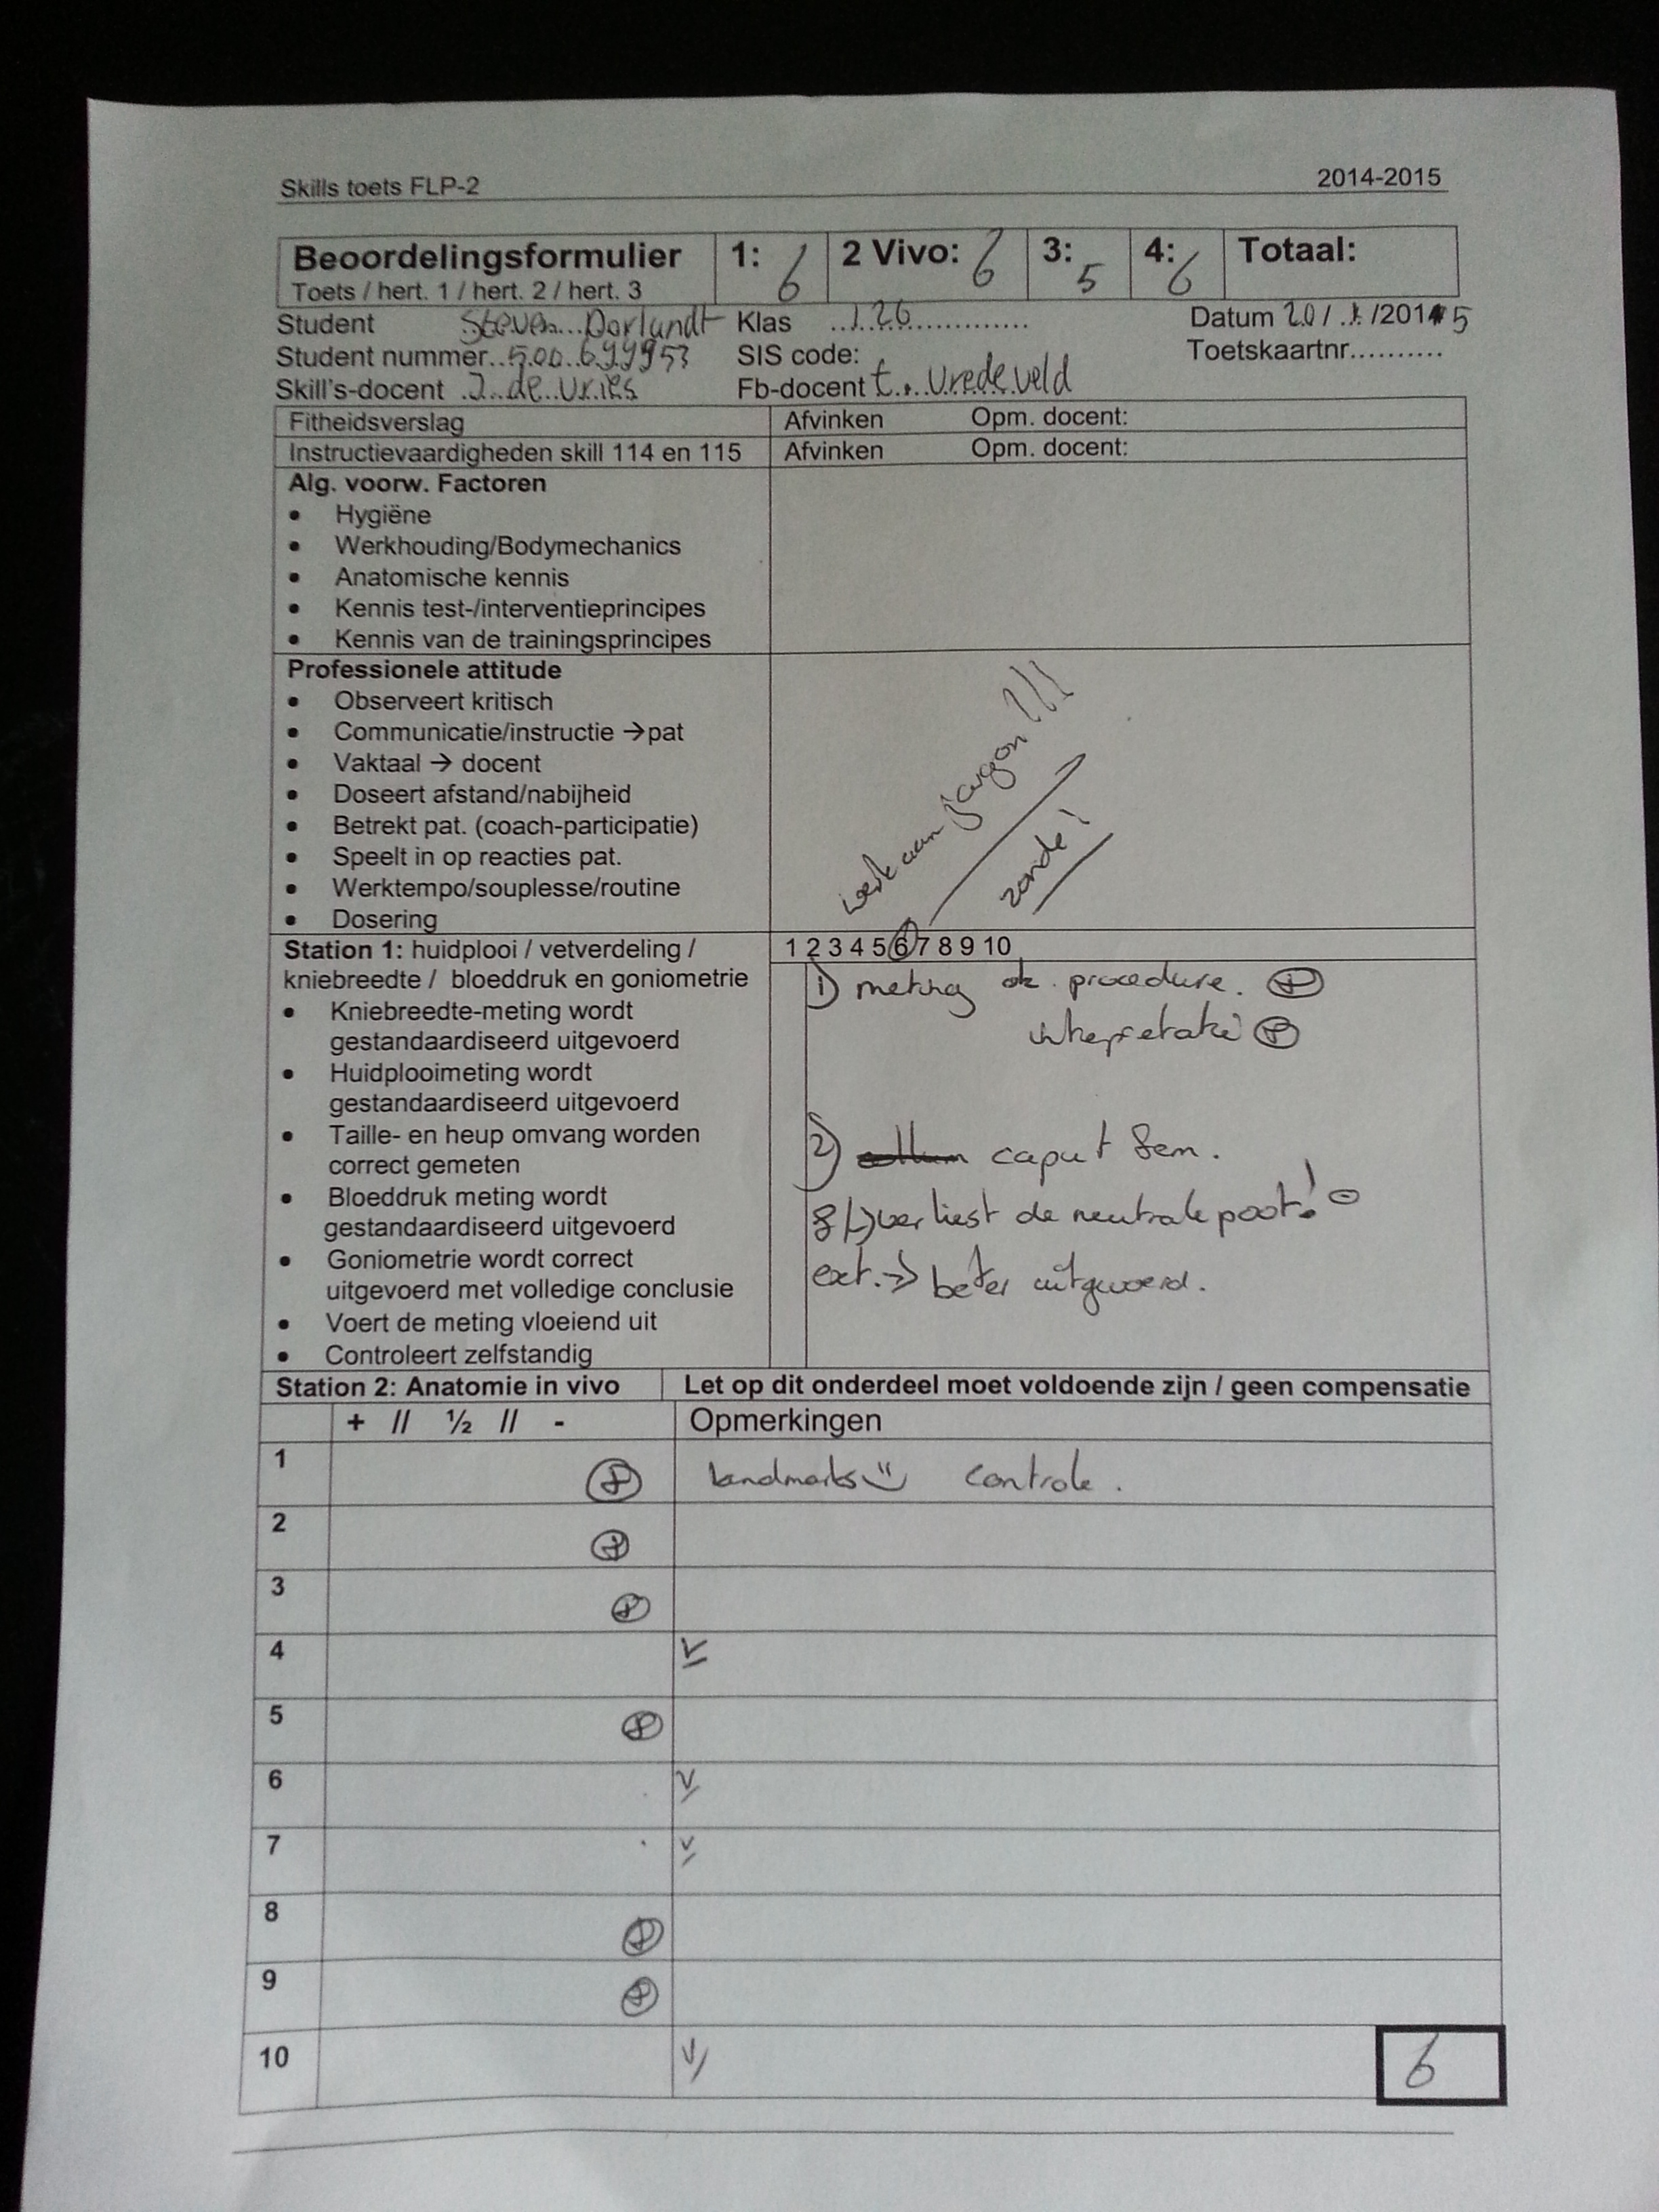 Skills toets FLP-2 2014-2015
Beoordelingsformulier 1: 6 2 Vivo: 6 3: 5 4: 6 Totaal:
Toets / hert. 1 / hert. 2 / hert. 3
Student Steven Dorlandt Klas 126 Datum 20/1/2015
Student nummer..500 699953 SIS code: Toetskaartnr..........
Skill's-docent J. de Vries Fb-docent t. Vredeveld
Fitheidsverslag Afvinken Opm. docent:
Instructievaardigheden skill 114 en 115 Afvinken Opm. docent:
Alg. voorw. Factoren
• Hygiëne
• Werkhouding/Bodymechanics
• Anatomische kennis
• Kennis test-/interventieprincipes
• Kennis van de trainingsprincipes
Professionele attitude
• Observeert kritisch
• Communicatie/instructie →pat
• Vaktaal → docent
• Doseert afstand/nabijheid
• Betrekt pat. (coach-participatie)
• Speelt in op reacties pat.
• Werktempo/souplesse/routine
• Dosering
werk aan jargon !!!
zonde!
Station 1: huidplooi / vetverdeling / 1 2 3 4 5 6 7 8 9 10
kniebreedte / bloeddruk en goniometrie
• Kniebreedte-meting wordt
gestandaardiseerd uitgevoerd
• Huidplooimeting wordt
gestandaardiseerd uitgevoerd
• Taille- en heup omvang worden
correct gemeten
• Bloeddruk meting wordt
gestandaardiseerd uitgevoerd
• Goniometrie wordt correct
uitgevoerd met volledige conclusie
• Voert de meting vloeiend uit
• Controleert zelfstandig
1) meting ok. procedure. +
interpretatie +
2) caput fem.
verliest de neutrale poot! -
ext. → beter uitgevoerd.
Station 2: Anatomie in vivo Let op dit onderdeel moet voldoende zijn / geen compensatie
+ // ½ // - Opmerkingen
1 + landmarks controle.
2 +
3 +
4 V
5 +
6 V
7 V
8 +
9 +
10 V 6